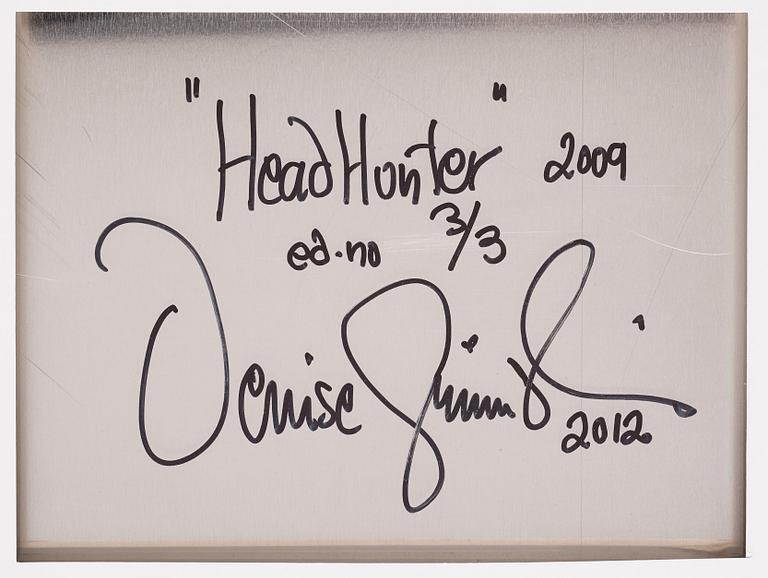 "HeadHunter" 2009
ed.no 3/3
Denise
2012